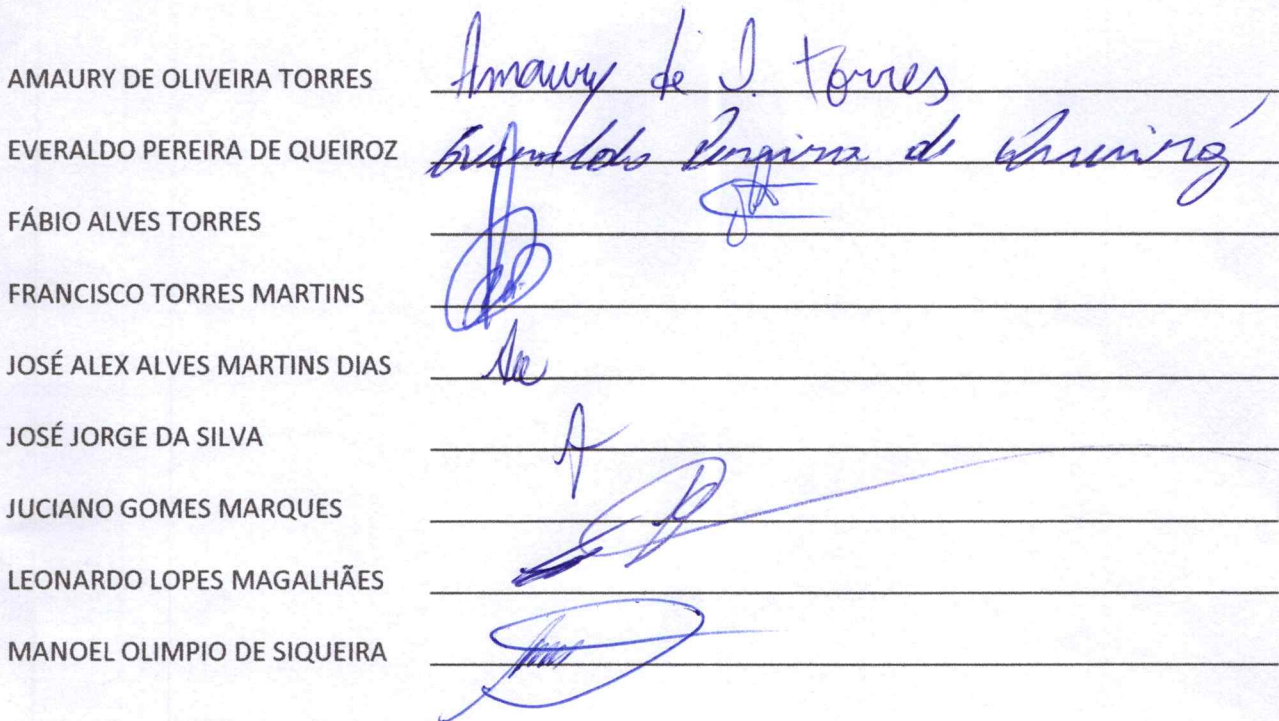 AMAURY DE OLIVEIRA TORRES Amaury de O. Torres
EVERALDO PEREIRA DE QUEIROZ Everaldo Pereira de Queiroz
FÁBIO ALVES TORRES
FRANCISCO TORRES MARTINS
JOSÉ ALEX ALVES MARTINS DIAS
JOSÉ JORGE DA SILVA
JUCIANO GOMES MARQUES
LEONARDO LOPES MAGALHÃES
MANOEL OLIMPIO DE SIQUEIRA